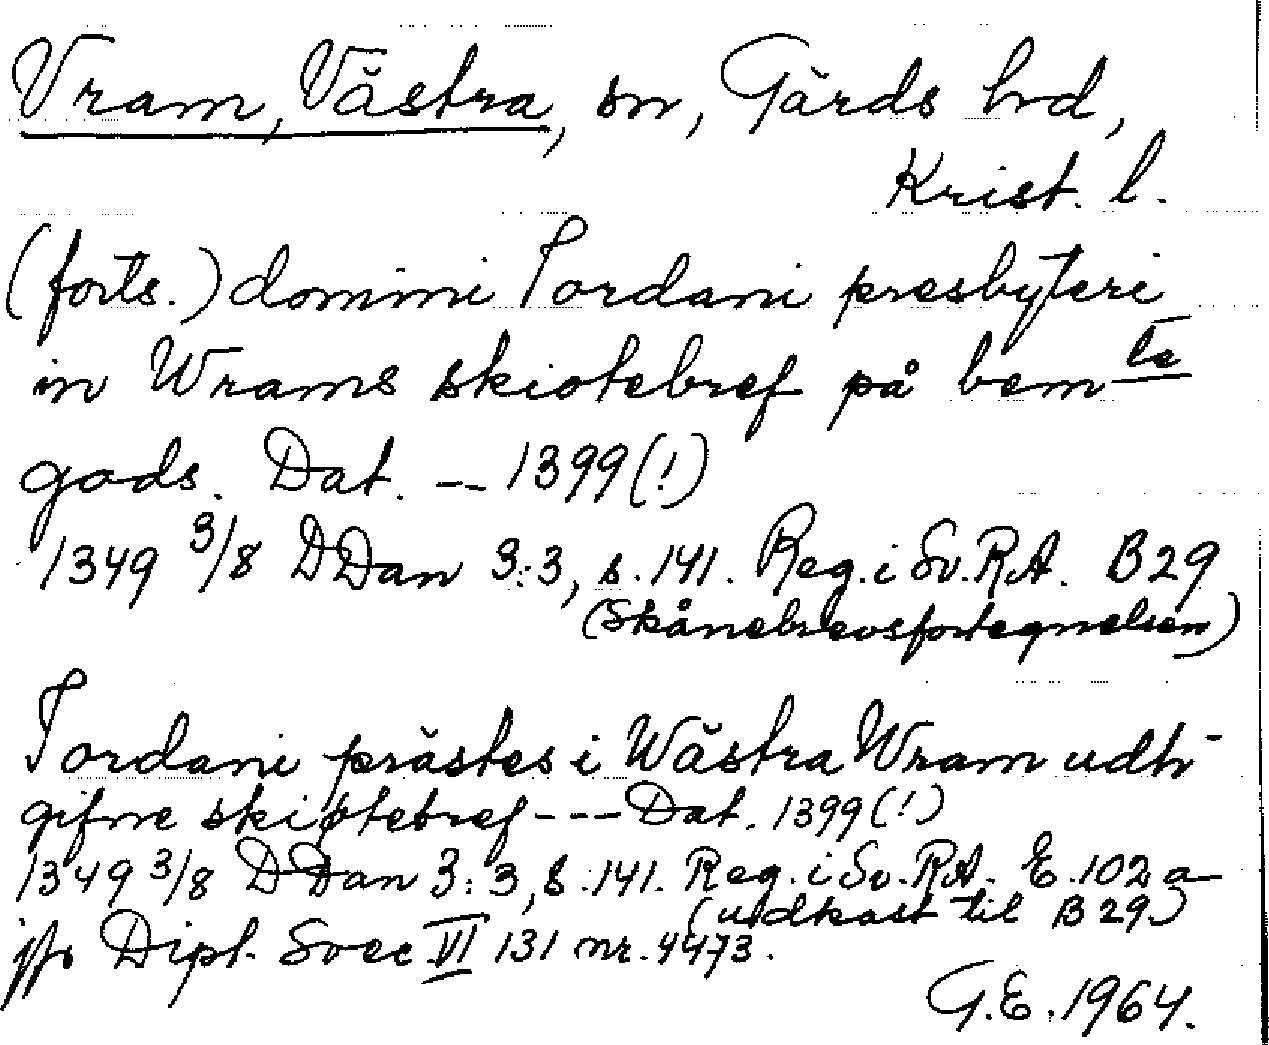 Vram, Västra, sn, Gärds hd,
Krist. l.
(forts.) domini Tordani presbyteri
in Wrams skiotebref på bem te
gods. Dat. -- 1399 (!)
1349 3/8 DDan 3:3, s. 141. Reg. i Sv. R.A. B 29
(Skånebrevsfortegnelsen)
Tordani prästes i Wästra Wram udh-
gifne skiøtebref --- Dat. 1399 (!)
1349 3/8 DDan 3:3, s. 141. Reg. i Sv. R.A. E. 102 a
(udkast til B 29)
jfr Dipl. Svec VI 131 nr. 4473.
G.E. 1964.